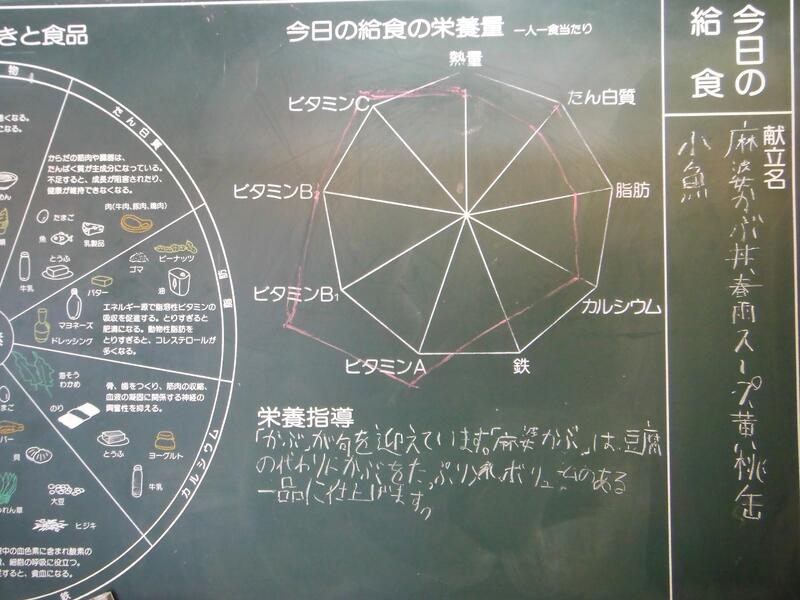 きと食品
たん白質
からだの筋肉や臓器は、
たんぱく質が主成分になっている。
不足すると、成長が阻害されたり、
健康が維持できなくなる。
たまご
肉(牛肉、豚肉、鶏肉)
魚
乳製品
とうふ
牛乳
脂肪
ゴマ
ピーナッツ
バター
油
マヨネーズ
ドレッシング
エネルギー源で脂溶性ビタミンの
吸収を促進する。とりすぎると
肥満になる。動物性脂肪を
とりすぎると、コレステロールが
多くなる。
カルシウム
海そう
わかめ
のり
骨、歯をつくり、筋肉の収縮、
血液の凝固に関係する神経の
興奮性を抑える。
とうふ
ヨーグルト
牛乳
鉄
貝
大豆
ヒジキ
中の血色素に含まれ酸素の
、細胞の呼吸に役立つ。
すると、貧血になる。
今日の給食の栄養量 一人一食当たり
熱量
たん白質
脂肪
カルシウム
鉄
ビタミンA
ビタミンB1
ビタミンB2
ビタミンC
栄養指導
「かぶ」が旬を迎えています。「麻婆かぶ」は、豆腐
の代わりにかぶをたっぷり入れ、ボリュームのある
一品に仕上げます。
今日の
給食
献立名
麻婆かぶ丼、春雨スープ、黄桃缶
小魚